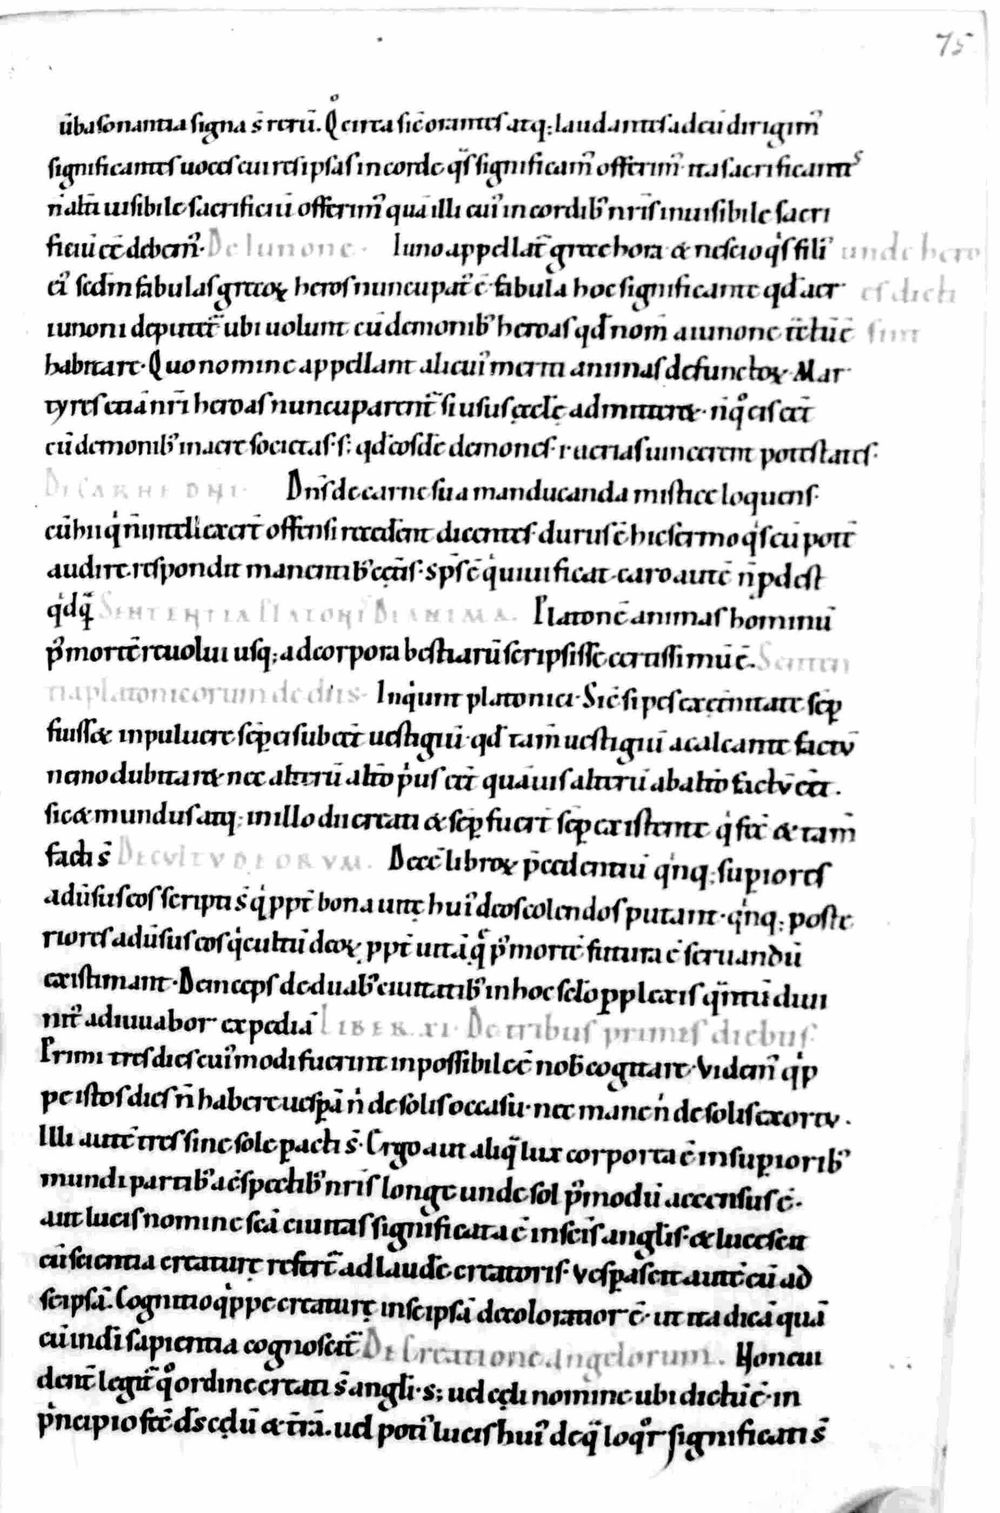 75
ūba sonantia signa s̄ rerū. Qͦ circa sic̄ orantes atq; laudantes ad eū dirigim᷒
significantes uoces cui res ipsas in corde q̄s significam᷒ offerim᷒ ita sacrificantes
n̄ alt̄i uisibile sacrificiū offerim᷒ quā illi cui᷒ in cordib᷒ nr̄is inuisibile sacri
ficiū eē debem᷒. De Iunone. Iuno appellat̄ grece hora & nescio qͥs fili᷒ unde hero
ei᷒ scdm̄ fabulas grecoꝝ heros nuncupat᷒ ē. fabula hoc significante qd̄ aer es dicti
iunoni deputet᷒ ubi uolunt cū demonib᷒ heroas qd̄ nom̄ a iunone t̄ctū ē sunt
habitare. Quo nomine appellant alicui᷒ meriti animas defunctoꝝ. Mar
tyres etiā nr̄i heroas nuncuparent᷒ si usus ęcclē admitteret. n̄ qͦ eis eēt
cū demonib᷒ in aere societas. s; qd̄ eosdē demones. i. aerias uincerent potestates.
DE CARNE DNI. Dn̄s de carne sua manducanda mistice loquens.
cū hii qͥ n̄ intellexer̄t offensi recedent dicentes. durus ē hic sermo qͥs eū potē
audire. respondit manentib᷒ cęt̄is. Sp̄s ē qͥ uiuificat. caro autē n̄ pdest
qͥdq̄ SENTENTIA PLATONIS DE ANIMA. Platonē animas hominū
p᷒ mortē reuolui usq; ad corpora bestiarū scripsisse certissimū ē. Senten
tia platonicorum de diis. Inqͥunt platonici. Sic̄ si pes ex ęt̄nitate sēp
fuiss& in puluere sēp ei subēet uestigiū. qd̄ tam̄ uestigiū a calcante factū
nemo dubitaret nec alterū alt̄o pͥus eēt quāuis alterū ab alt̄o factū eēt.
sic & mundus atq; in illo dii creati & sēp fuer̄t sēp existente qͥ fēc & tam̄
facti s̄ DE CULTU DEORUM. Decē libroꝝ p̄cedentiū qͥnq; supiores
aduersus eos scripti s̄ qͥ ppt̄ bona uitę hui᷒ deos colendos putant. qͥnq; poste
riores aduersus eos qͥ cultū deoꝝ ppt̄ uitā q̄ p᷒ mortē futura ē seruandū
existimant. Deinceps de duab᷒ ciuitatib᷒ in hoc sc̄lo pplexis q̄ntū diui
nit᷒ adiuuabor expediā LIBER. XI. De tribus primis diebus.
Primi tres dies cui᷒modi fuerint inpossibile ē nob̄ cogitare. Videm᷒ qͥp
pe istos dies n̄ habere uesp̄ā nͥ de solis occasu. nec mane nͥ de solis exortu.
Illi autē tres sine sole pacti s̄. Ergo aut aliq̄ lux corporea ē in superiorib᷒
mundi partib᷒ ac̄spectib᷒ nr̄is longe unde sol p᷒modū accensus ē.
aut lucis nomine sc̄a ciuitas significata ē in sc̄is anglis. & lucescit
cū scientia creaturę refert᷒ ad laudē creatoris. Vesperascit autē cū ad
seipsā. Cognitio qͥppe creaturę in seipsā decoloratior ē. ut ita dicā quā
cū in dī sapientia cognoscit᷒ De Creatione angelorum. Non eui
dent̄ legit᷒ qͦ ordine creati s̄ angli. s; uel cęli nomine ubi dictū ē. in
pͥncipio fēc d̄s cęlū & t̄rā. uel poti᷒ lucis hui᷒ de q̄ loqͦr significati s̄